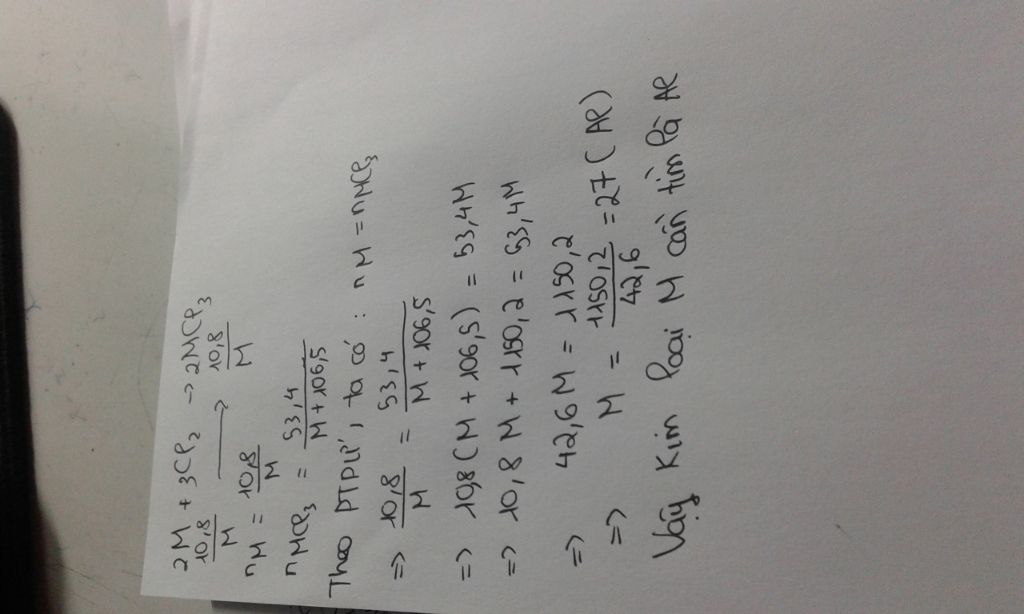 2M + 3Cl₂ → 2MCl₃
10,8/M → 10,8/M
nM = 10,8/M
nMCl₃ = 53,4/(M + 106,5)
Theo PTPƯ, ta có : nM = nMCl₃
=> 10,8/M = 53,4/(M + 106,5)
=> 10,8(M + 106,5) = 53,4M
=> 10,8M + 1150,2 = 53,4M
=> 42,6M = 1150,2
=> M = 1150,2/42,6 = 27 (Al)
Vậy Kim loại M cần tìm là Al